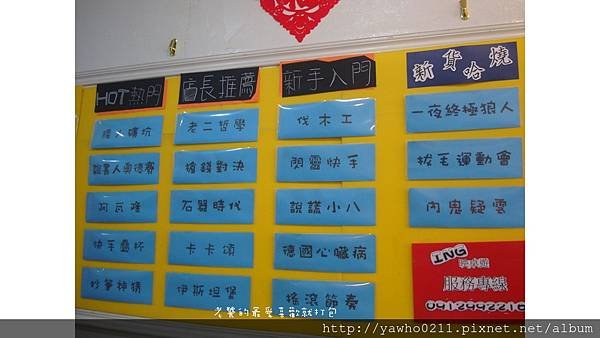 HOT熱門
矮人礦坑
說書人奧德賽
阿瓦隆
快手疊杯
妙筆神猜
店長推薦
老二哲學
搶錢對決
石器時代
卡卡頌
伊斯坦堡
新手入門
伐木工
閃靈快手
說謊小八
德國心臟病
搖滾節奏
新貨哈燒
一夜終極狼人
拔毛運動會
內鬼疑雲
ING
服務專線
老饕的最愛喜歡就打包
http://yawho0211.pixnet.net/album